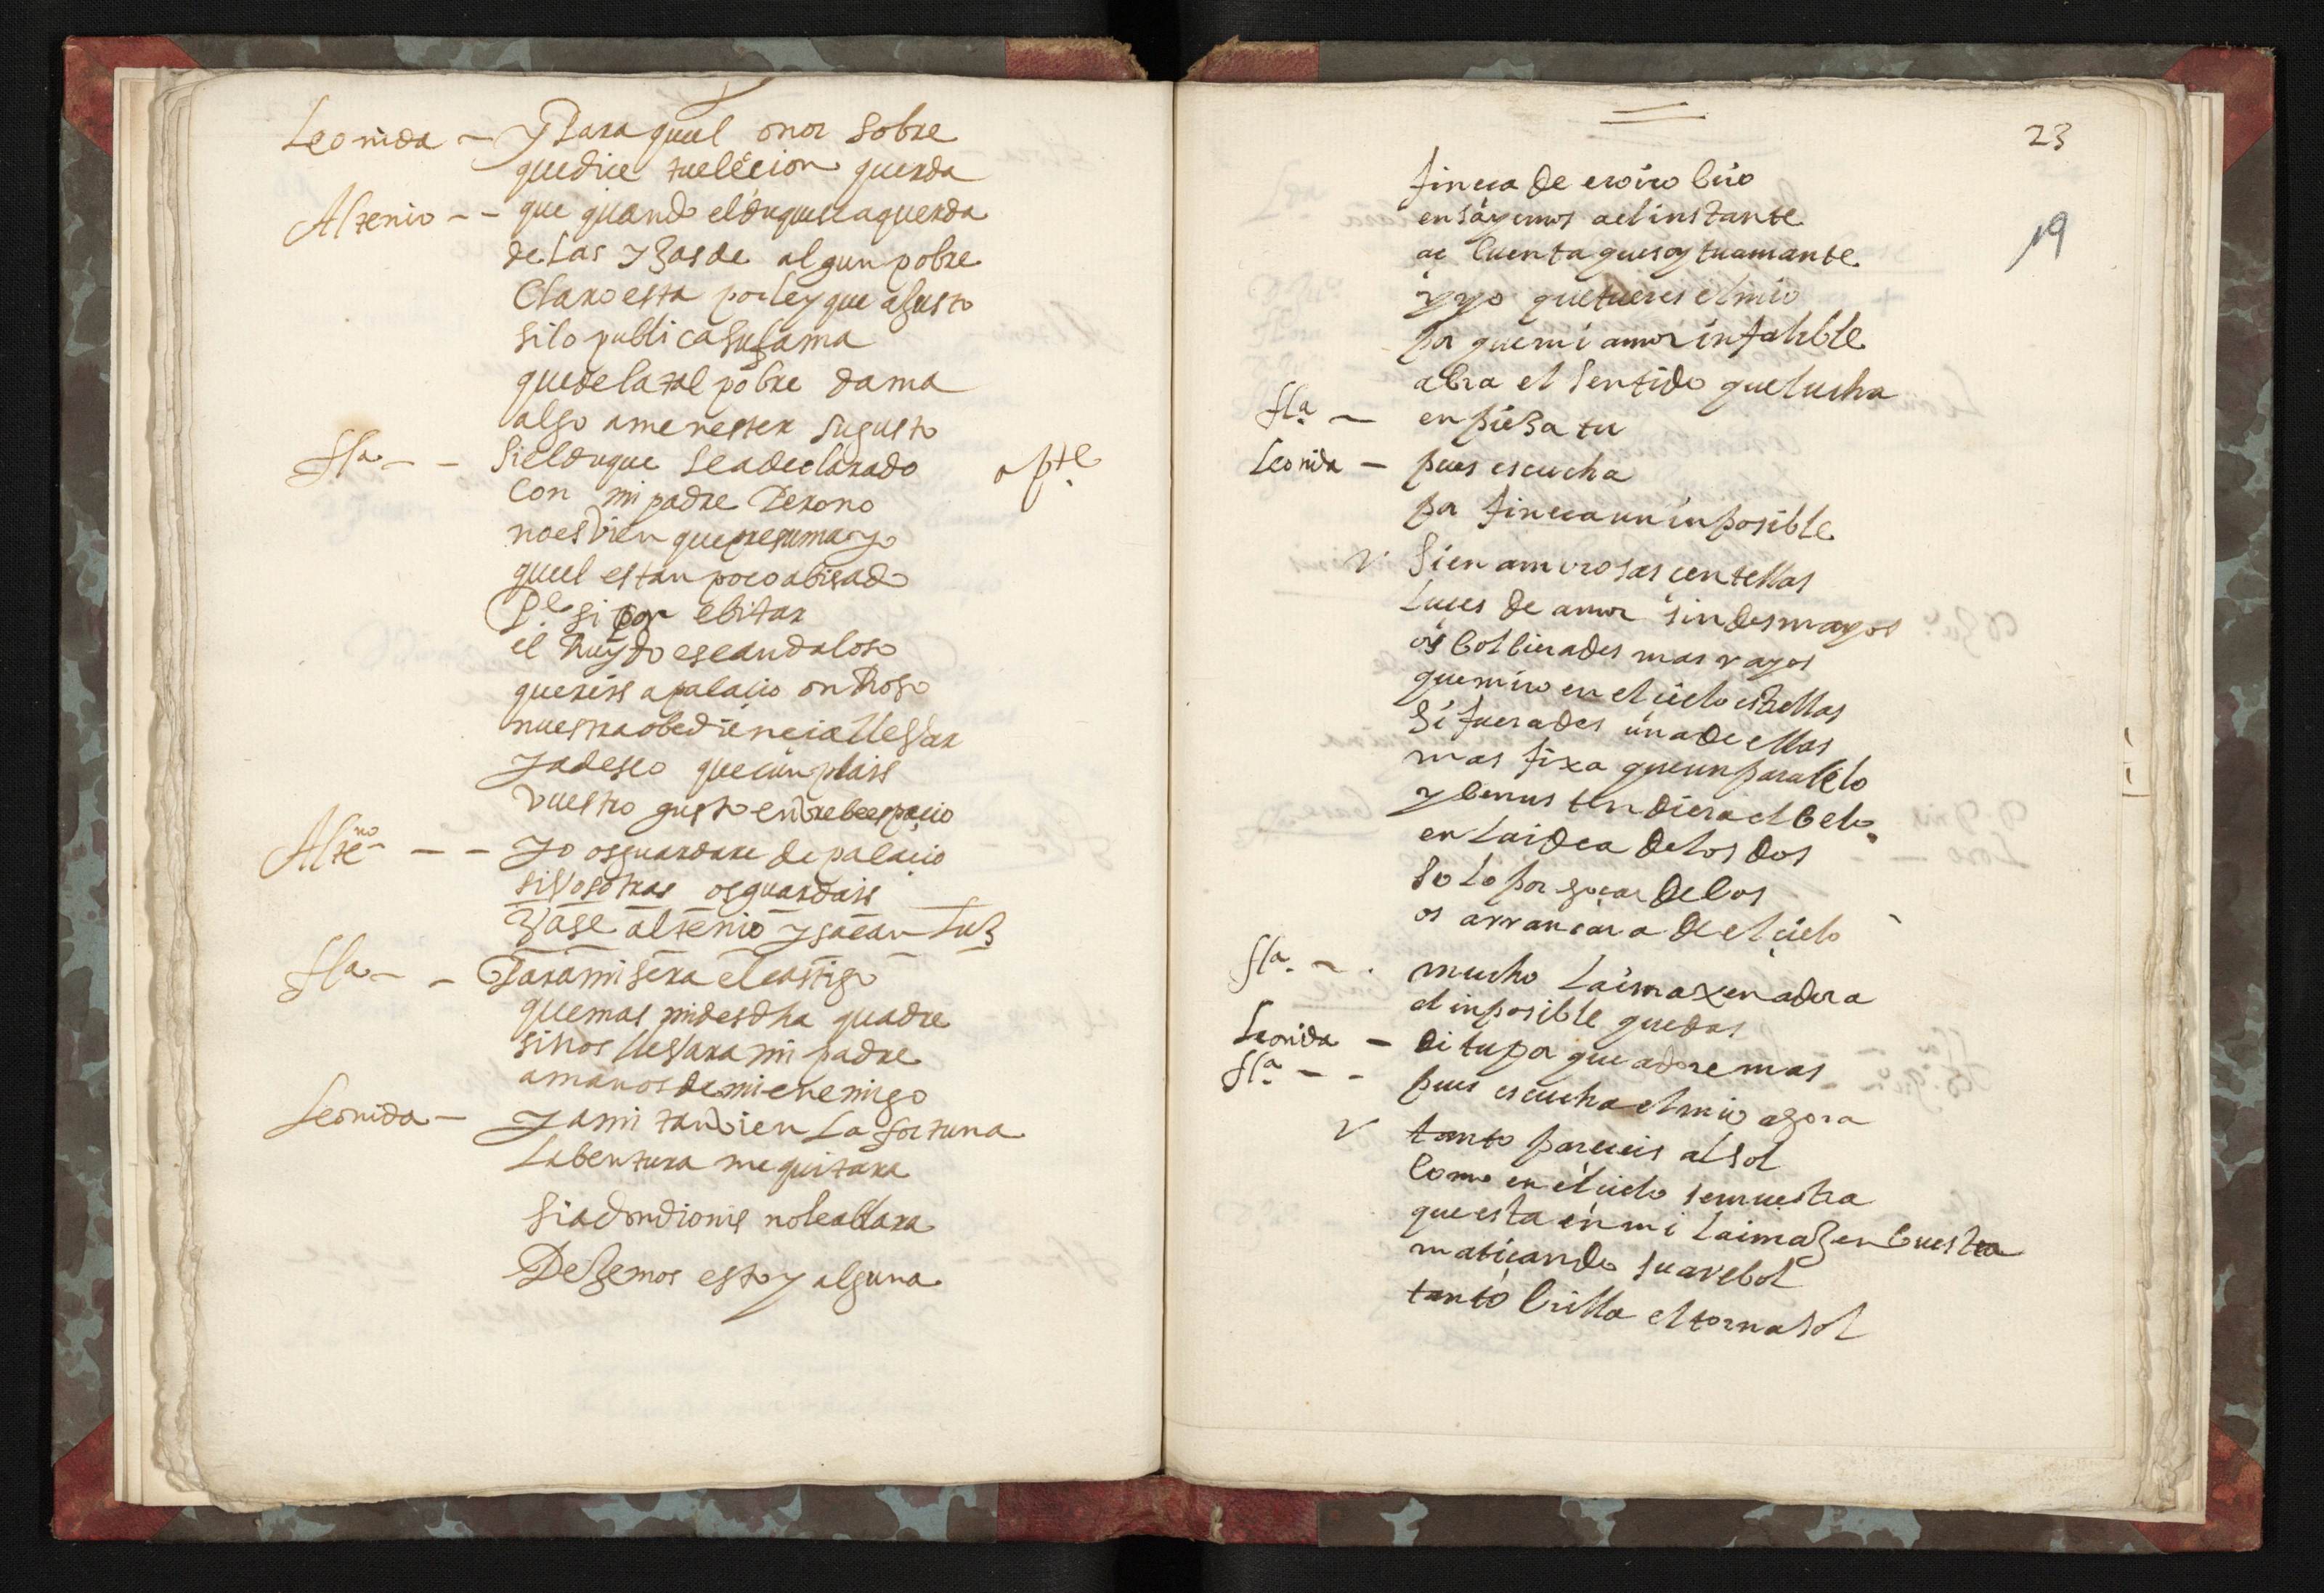 Leonida - y Para quel onor sobre
que dice tu elecion querda
Altenio - - que quando el duque se aquerda
de las yJas de algun pobre
Claro esta por ley que a gusto
si lo publica su fama
que de la tal pobre dama
algo a menester su gusto
fla - - si el duque se a declarado apte
Con mi padre Pero no
no es vien que presuma yo
quel es tan poco abisado
Pe. si por ebitar
el Ruydo escandaloso
quereis a palacio on Roso
nuestra obediencia llebar
ya deseo que cunplais
vuestro gusto en brebe espacio
Alteno - - yo os guardare de palacio
si vosotras os guardais
Vase altenio y sacan Luz
fla - - Para mi sera el castigo
que mas mi desdha quadre
si nos llebara mi padre
a manos de mi enemigo
Leonida - y a mi tanvien La fortuna
La bentura me quitara
si a don dionis no le allara
Dejemos esto y alguna
23
19
fineça de eroico brio
ensayemos a el instante
aç cuenta que soy tu amante
y yo que tu eres el mio
por que mi amor infalible
abra el sentido que lucha
fla. - enpieça tu
Leonida - pues escucha
por fineça un inposible
v si en amorosas çentellas
Luces de amor sin desmayos
os bolbierades mas rayos
que miro en el cielo estrellas
si fuerades una de ellas
mas fixa que un paralelo
y benus tendiera el belo
en La idea de los dos
solo por goçar de bos
os arrancara de el çielo
fla. - mucho La imaxen adora
el inposible que das
Leonida - di tu por que adore mas
fla. - - pues escucha el mio agora
v tanto pareçeis al sol
como en el cielo se muestra
que esta en mi La imagen buestra
matiçando su arebol
tanto brilla el tornasol